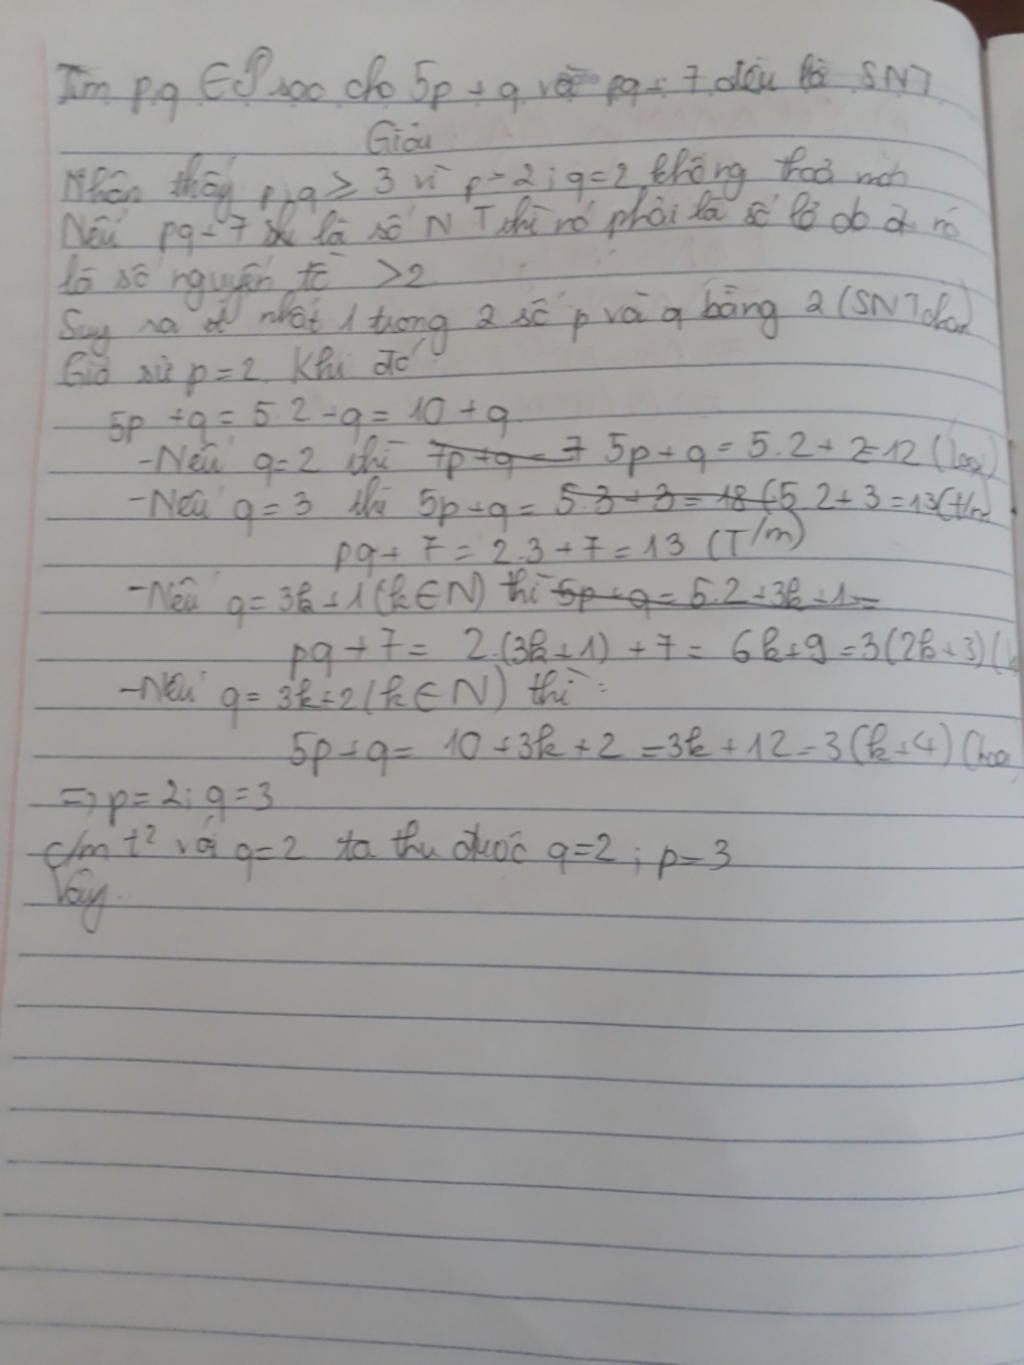 Tìm p,q ∈ P sao cho 5p + q và pq + 7 đều là SNT
Giải
Nhận thấy p,q ≥ 3 vì p = 2; q = 2 không thoả mãn
Nếu pq + 7 là số NT thì nó phải là số lẻ do đó nó
là số nguyên tố > 2
Suy ra ít nhất 1 trong 2 số p và q bằng 2 (SNT chẵn)
Giả sử p = 2. Khi đó
5p + q = 5.2 + q = 10 + q
- Nếu q = 2 thì 7p + q = 7 5p + q = 5.2 + 2 = 12 (loại)
- Nếu q = 3 thì 5p + q = 5.3 + 3 = 18 (5.2 + 3 = 13 (t/m
pq + 7 = 2.3 + 7 = 13 (T/m)
- Nếu q = 3k + 1 (k ∈ N) thì 5p + q = 5.2 + 3k + 1 =
pq + 7 = 2.(3k + 1) + 7 = 6k + 9 = 3(2k + 3) (
- Nếu q = 3k + 2 (k ∈ N) thì :
5p + q = 10 + 3k + 2 = 3k + 12 = 3(k + 4) (loại
=> p = 2; q = 3
c/m t² với q = 2 ta thu được q = 2 ; p = 3
Vậy.